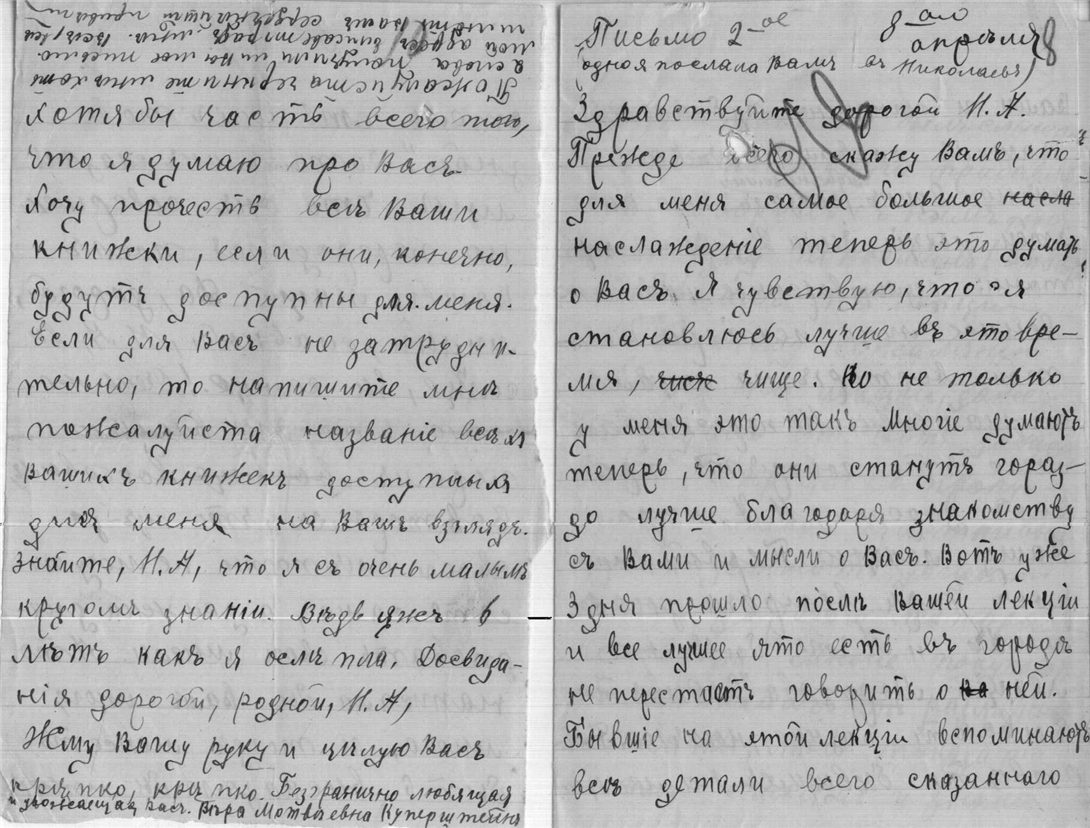 Письмо 2-ое 8-ого апрѣля
(одно я послала Вамъ въ Николаевъ)
Здравствуйте дорогой Н. А.
Прежде всего скажу Вамъ, что
для меня самое большое насла
наслажденіе теперь это думать
о Васъ. Я чувствую, что я
становлюсь лучше въ это вре-
мя, чище. Но не только
у меня это такъ Многіе думаютъ
теперь, что они станутъ гораз-
до лучше благодаря знакомству
съ Вами и мысли о Васъ. Вотъ уже
3 дня прошло послѣ Вашей лекціи
и все лучшее что есть въ городѣ
не перестаетъ говорить о ней.
Бывшіе на этой лекціи вспоминаютъ
всѣ детали всего сказаннаго
хотя бы часть всего того,
что я думаю про Васъ.
Хочу прочесть всѣ Ваши
книжки, если они, конечно,
будутъ доступны для меня.
Если для Васъ не затрудни-
тельно, то напишите мнѣ
пожалуйста названіе всѣхъ
Вашихъ книжекъ доступныхъ
для меня на Вашъ взглядъ.
Знайте, Н. А, что я съ очень малымъ
кругомъ знаній. Вѣдь я же въ 6
лѣтъ какъ я ослѣпла. Досвида-
нія дорогой, родной, Н. А,
Жму Вашу руку и цѣлую Васъ
крѣпко, крѣпко. Безгранично любящая
и уважающая Васъ. Вѣра Матвѣевна Куперштейнъ
Пожалуйста черкните мнѣ хоть
2 слова получили ли Вы мое письмо.
Мой адресъ Елисаветградъ
шлютъ Вамъ сердечный привѣтъ